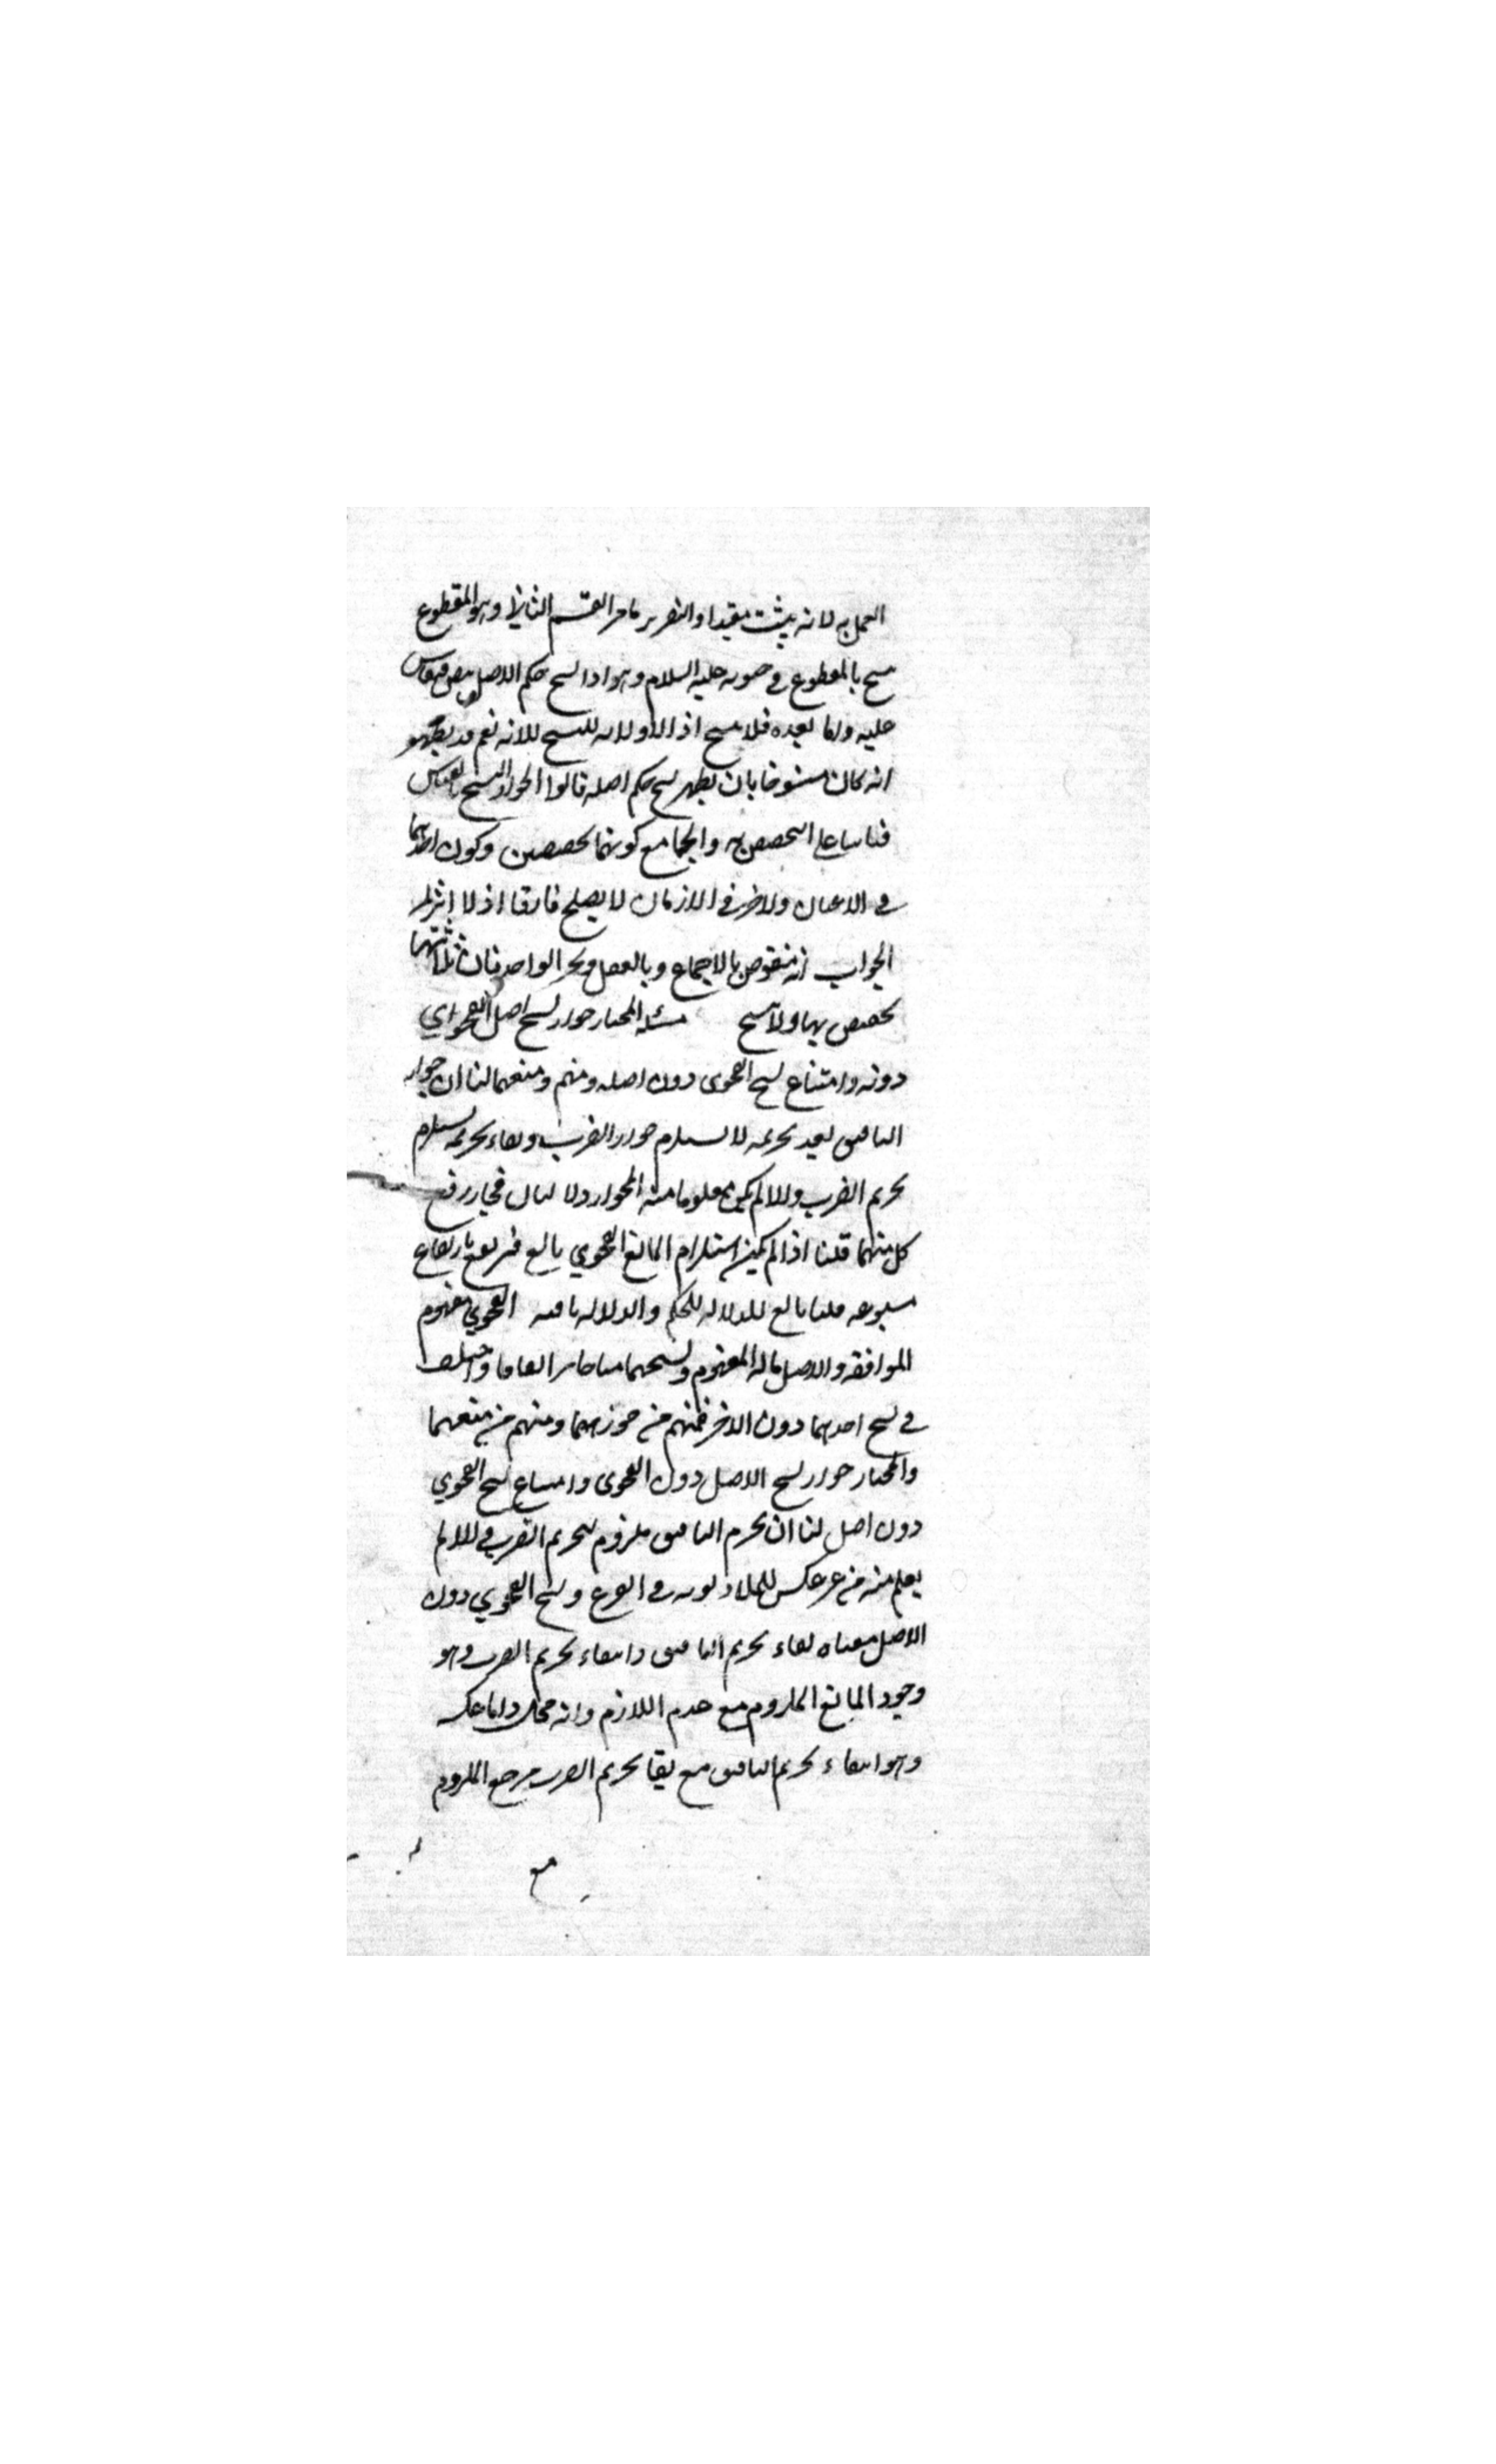 العمل به لانه يثبت مقيدا والتقرير مامر القسم الثاني وهو المقطوع
ينسخ بالمقطوع في حيوته عليه السلام وهو اذا نسخ حكم الاصل بنص فيقاس
عليه واما بعده فلا ينسخ اذ لا ولاية للنسخ للامة نعم قد يظهر
انه كان منسوخا بان يظهر نسخ حكم اصله قالوا الجواز النسخ بالقياس
قياسا على التخصيص به والجامع كونهما تخصيصين وكون احدهما
في الاعيان والاخر في الازمان لا يصلح فارقا اذ لا اثر له
الجواب انه منقوض بالاجماع وبالعقل وبخبر الواحد فان ثلاثتها
يخصص بها ولا ينسخ مسئلة المختار جواز نسخ اصل الفحوى
دونه وامتناع نسخ الفحوى دون اصله ومنهم ومنعهما لنا ان جواز
التافيف بعد تحريمه لا يستلزم جواز الضرب وبقاء تحريمه يستلزم
تحريم الضرب والا لم يكن معلوما منه المجوز دلالتان فجاز رفع
كل منهما قلنا اذا لم يكن استلزام المانع الفحوى تابع فيرتفع بارتفاع
متبوعه قلنا تابع للدلالة للحكم والدلالة باقية الفحوى مفهوم
الموافقة والاصل ماله المفهوم ونسخهما معا جائز اتفاقا واختلف
في نسخ احدهما دون الاخر فمنهم من جوزهما ومنهم من منعهما
والمختار جواز نسخ الاصل دون الفحوى وامتناع نسخ الفحوى
دون اصل لنا ان تحريم التافيف ملزوم لتحريم الضرب والا لم
يعلم منه من غير عكس اولويته في الفرع ونسخ الفحوى دون
الاصل معناه بقاء تحريم التافيف وانتفاء تحريم الضرب وهو
وجود المانع الملزوم مع عدم اللازم وانه محال واما عكسه
وهو انتفاء تحريم التافيف مع بقا تحريم الضرب مرجع الملزوم
مع